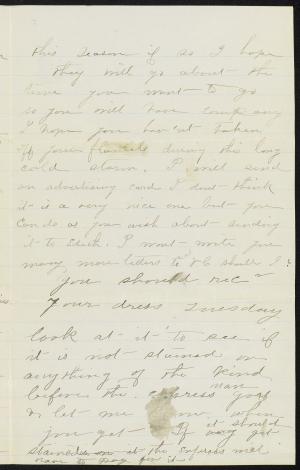 this season if so I hope
they will go about the
time you want to go
so you will have company
I hope you hav'nt taken
off your flannels during this long
cold storm. I will send
an advertising card I dont think
it is a very nice one but you
can do as you wish about sending
it to Edith. I wont write you
many more letters to shall I?
you should rec
your dress Tuesday
look at it to see if
it is not stained or
anything of the kind
before the express man goes
& let me know when
you get If it should
get
stained on it the Express will
have to pay for it